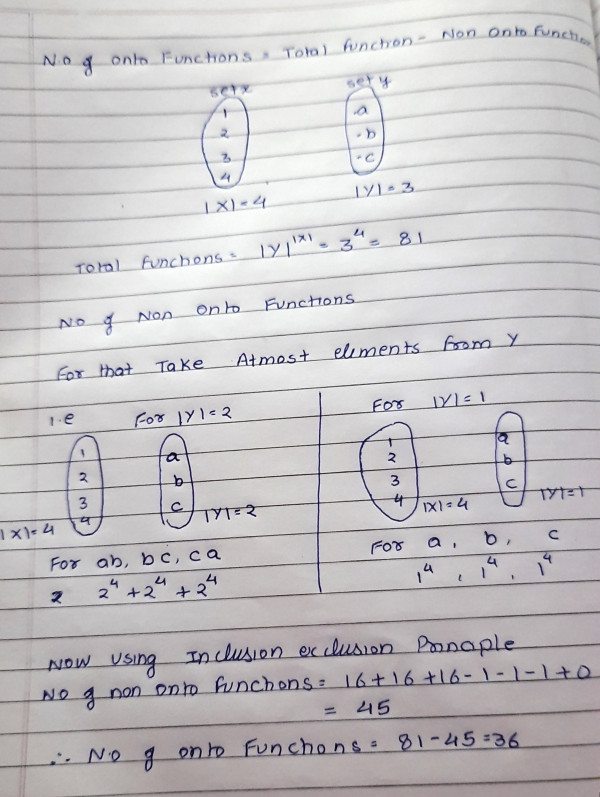 No of onto Functions = Total function - Non onto Function
set x set y
1 .a
2 .b
3 .c
4
|X| = 4 |Y| = 3
Total Functions = |Y|^|X| = 3^4 = 81
No of Non onto Functions
For that Take Atmost elements from Y
i.e For |Y| = 2 For |Y| = 1
1 a 1 a
2 b 2 b
3 c 3 c
4 4
|X| = 4 |Y| = 2 |X| = 4 |Y| = 1
For ab, bc, ca For a, b, c
2 2^4 + 2^4 + 2^4 1^4, 1^4, 1^4
Now using Inclusion exclusion Principle
No of non onto functions = 16 + 16 + 16 - 1 - 1 - 1 + 0
= 45
∴ No of onto Functions = 81 - 45 = 36